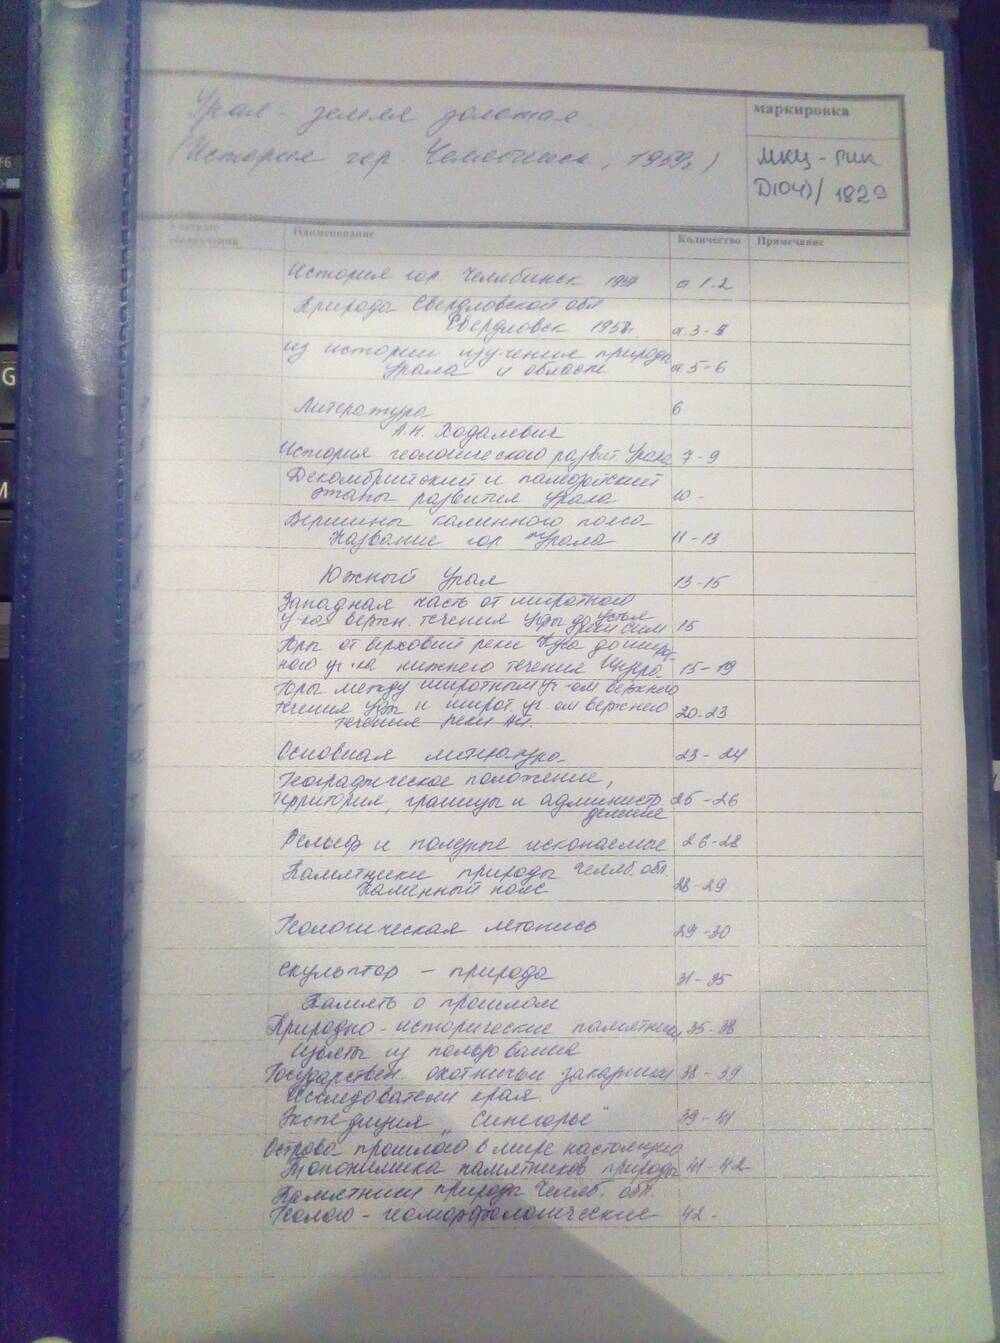 Урал - земля золотая.
(История гор. Челябинск, 1959г)
маркировка
МКЦ - ПИК
D(04)/ 1829
Учетные обозначения
Наименование
Количество
Примечание
История гор. Челябинск 1959 ст 1-2
Природа Свердловской обл
Свердловск 1958г. ст. 3-5
из истории изучения природы
Урала и области ст. 5-6
Литература 6
А.Н. Ходалевич
История геологического развит. Урала 7-9
Докембрийский и палеозойский
этапы развития Урала 10 -
Вершины каменного пояса
Название гор Урала 11-13
Южный Урал 13-15
Западная часть от широтного
уч-ка верхн. течения Уфы до устья
реки Сим 15
Горы от верховий реки Куса до широт-
ного уч-ка нижнего течения Инзера. 15-19
Горы между широтным уч-ом верхнего
течения Уфы и широт. уч-ом верхнего
течения реки Ай. 20-23
Основная литература 23-24
Географическое положение,
территория, границы и администр.
деление 25-26
Рельеф и полезные ископаемые 26-28
Памятники природы Челяб. обл.
Каменный пояс 28-29
Геологическая летопись 29-30
Скульптор - природа 31-35
Память о прошлом
Природно-исторические памятники 35-38
изъяты из пользования
Государствен. охотничьи заказники 38-39
Исследователи края.
Экспедиция „Синегорье" 39-41
Острова прошлого в мире настоящего
Топонимика памятников природы 41-42
Памятники природы Челяб. обл.
Геолого-геоморфологические 42 -